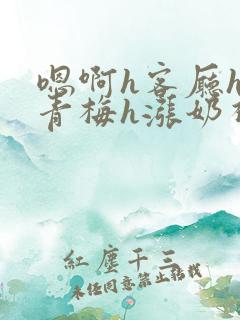 嗯啊h客厅h
青梅h涨奶
红尘千三
未经同意禁止转载